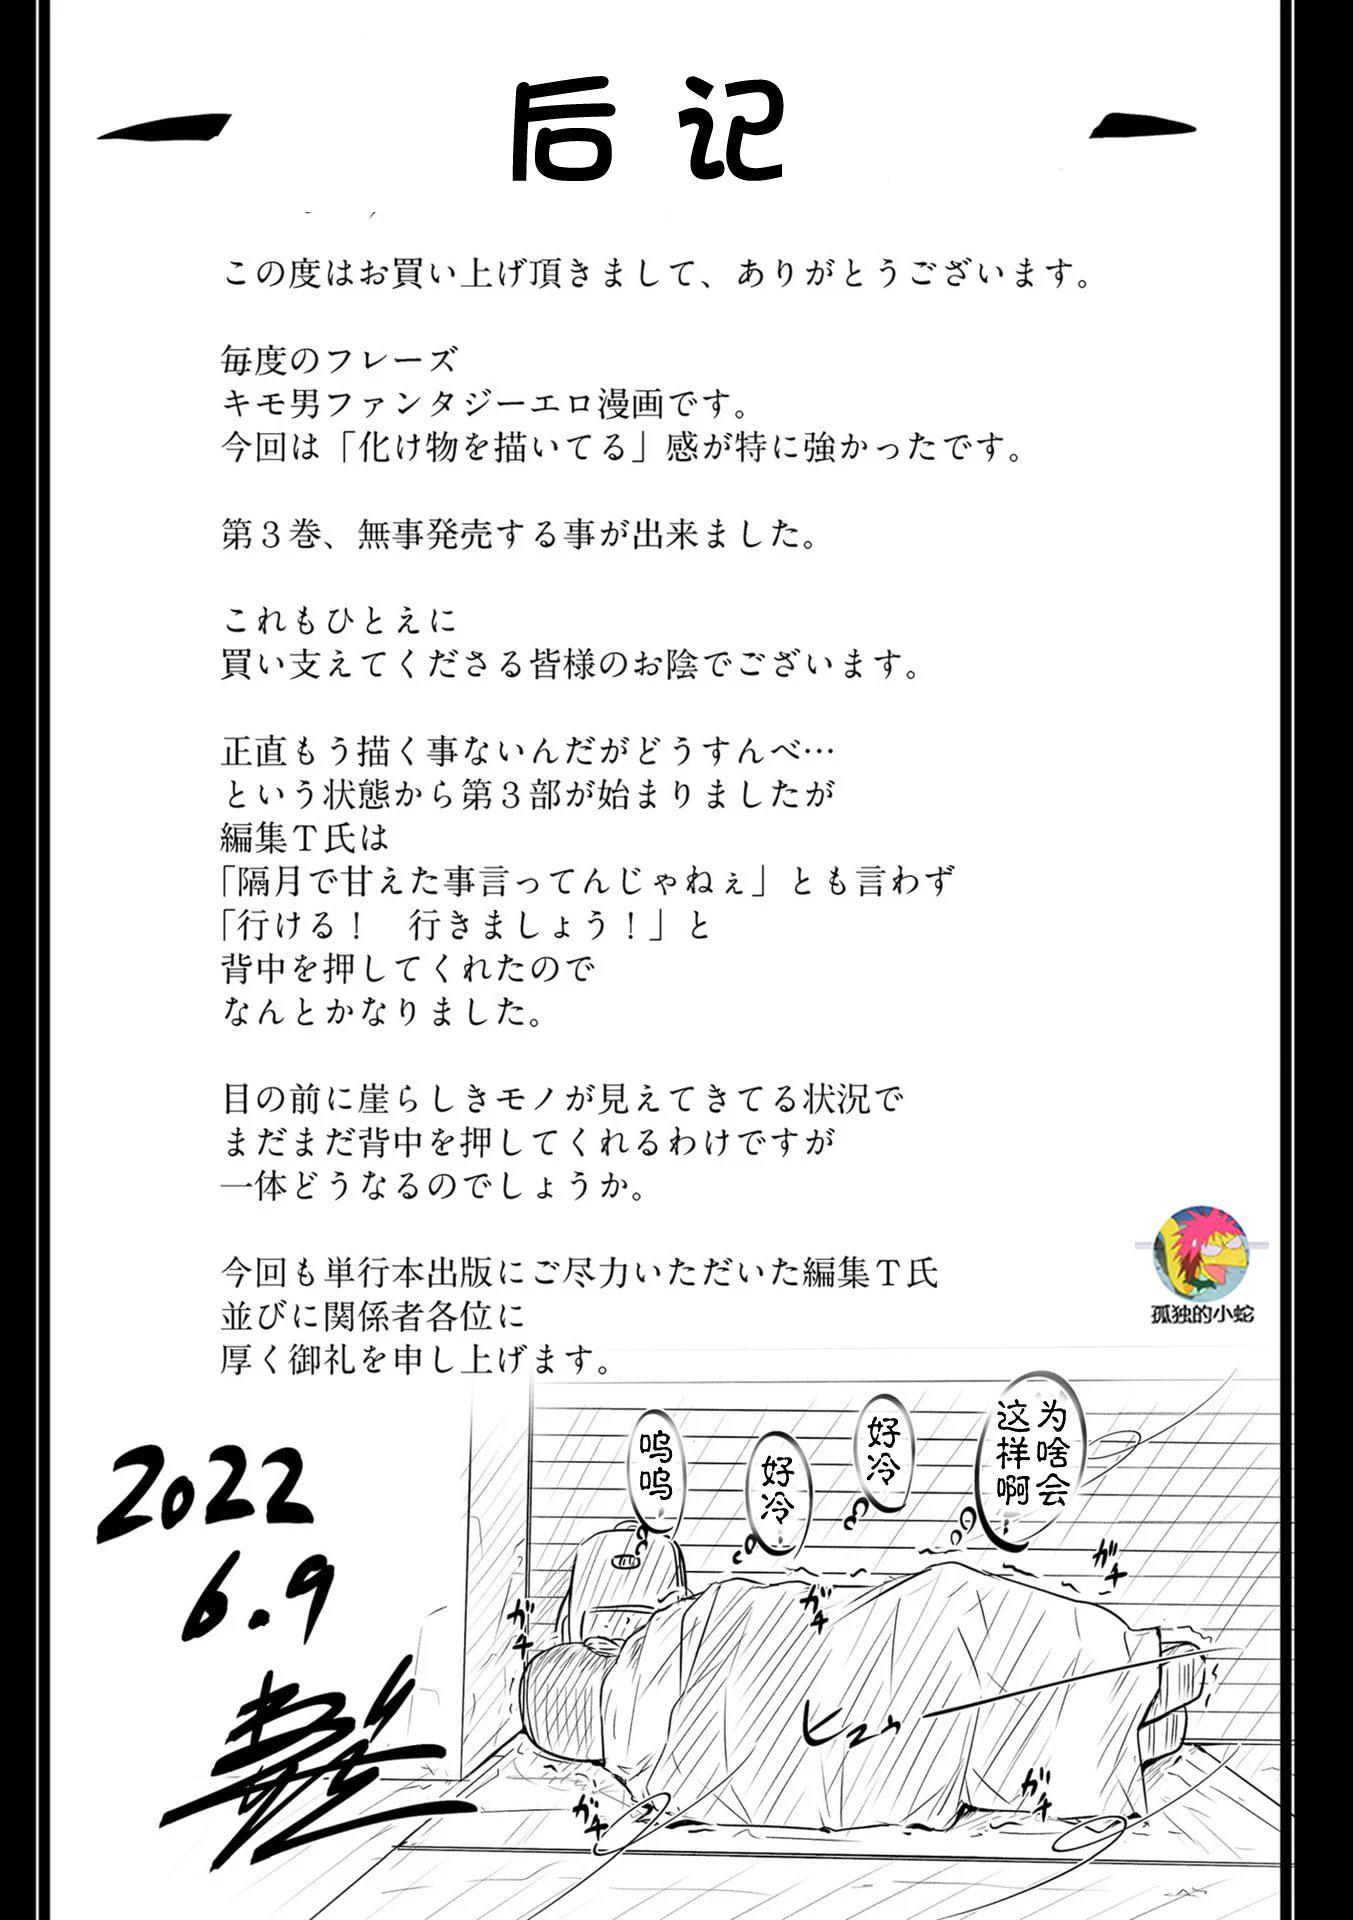 后记
この度はお買い上げ頂きまして、ありがとうございます。
毎度のフレーズ
キモ男ファンタジーエロ漫画です。
今回は「化け物を描いてる」感が特に強かったです。
第３巻、無事発売する事が出来ました。
これもひとえに
買い支えてくださる皆様のお陰でございます。
正直もう描く事ないんだがどうすんべ…
という状態から第３部が始まりましたが
編集Ｔ氏は
「隔月で甘えた事言ってんじゃねぇ」とも言わず
「行ける！　行きましょう！」と
背中を押してくれたので
なんとかなりました。
目の前に崖らしきモノが見えてきてる状況で
まだまだ背中を押してくれるわけですが
一体どうなるのでしょうか。
今回も単行本出版にご尽力いただいた編集Ｔ氏
並びに関係者各位に
厚く御礼を申し上げます。
孤独的小蛇
为啥会
这样啊
好冷
好冷
呜呜
ガチ
ガチ
ガチ
ヒュゥ
ガチ
ガチ
2022
6.9